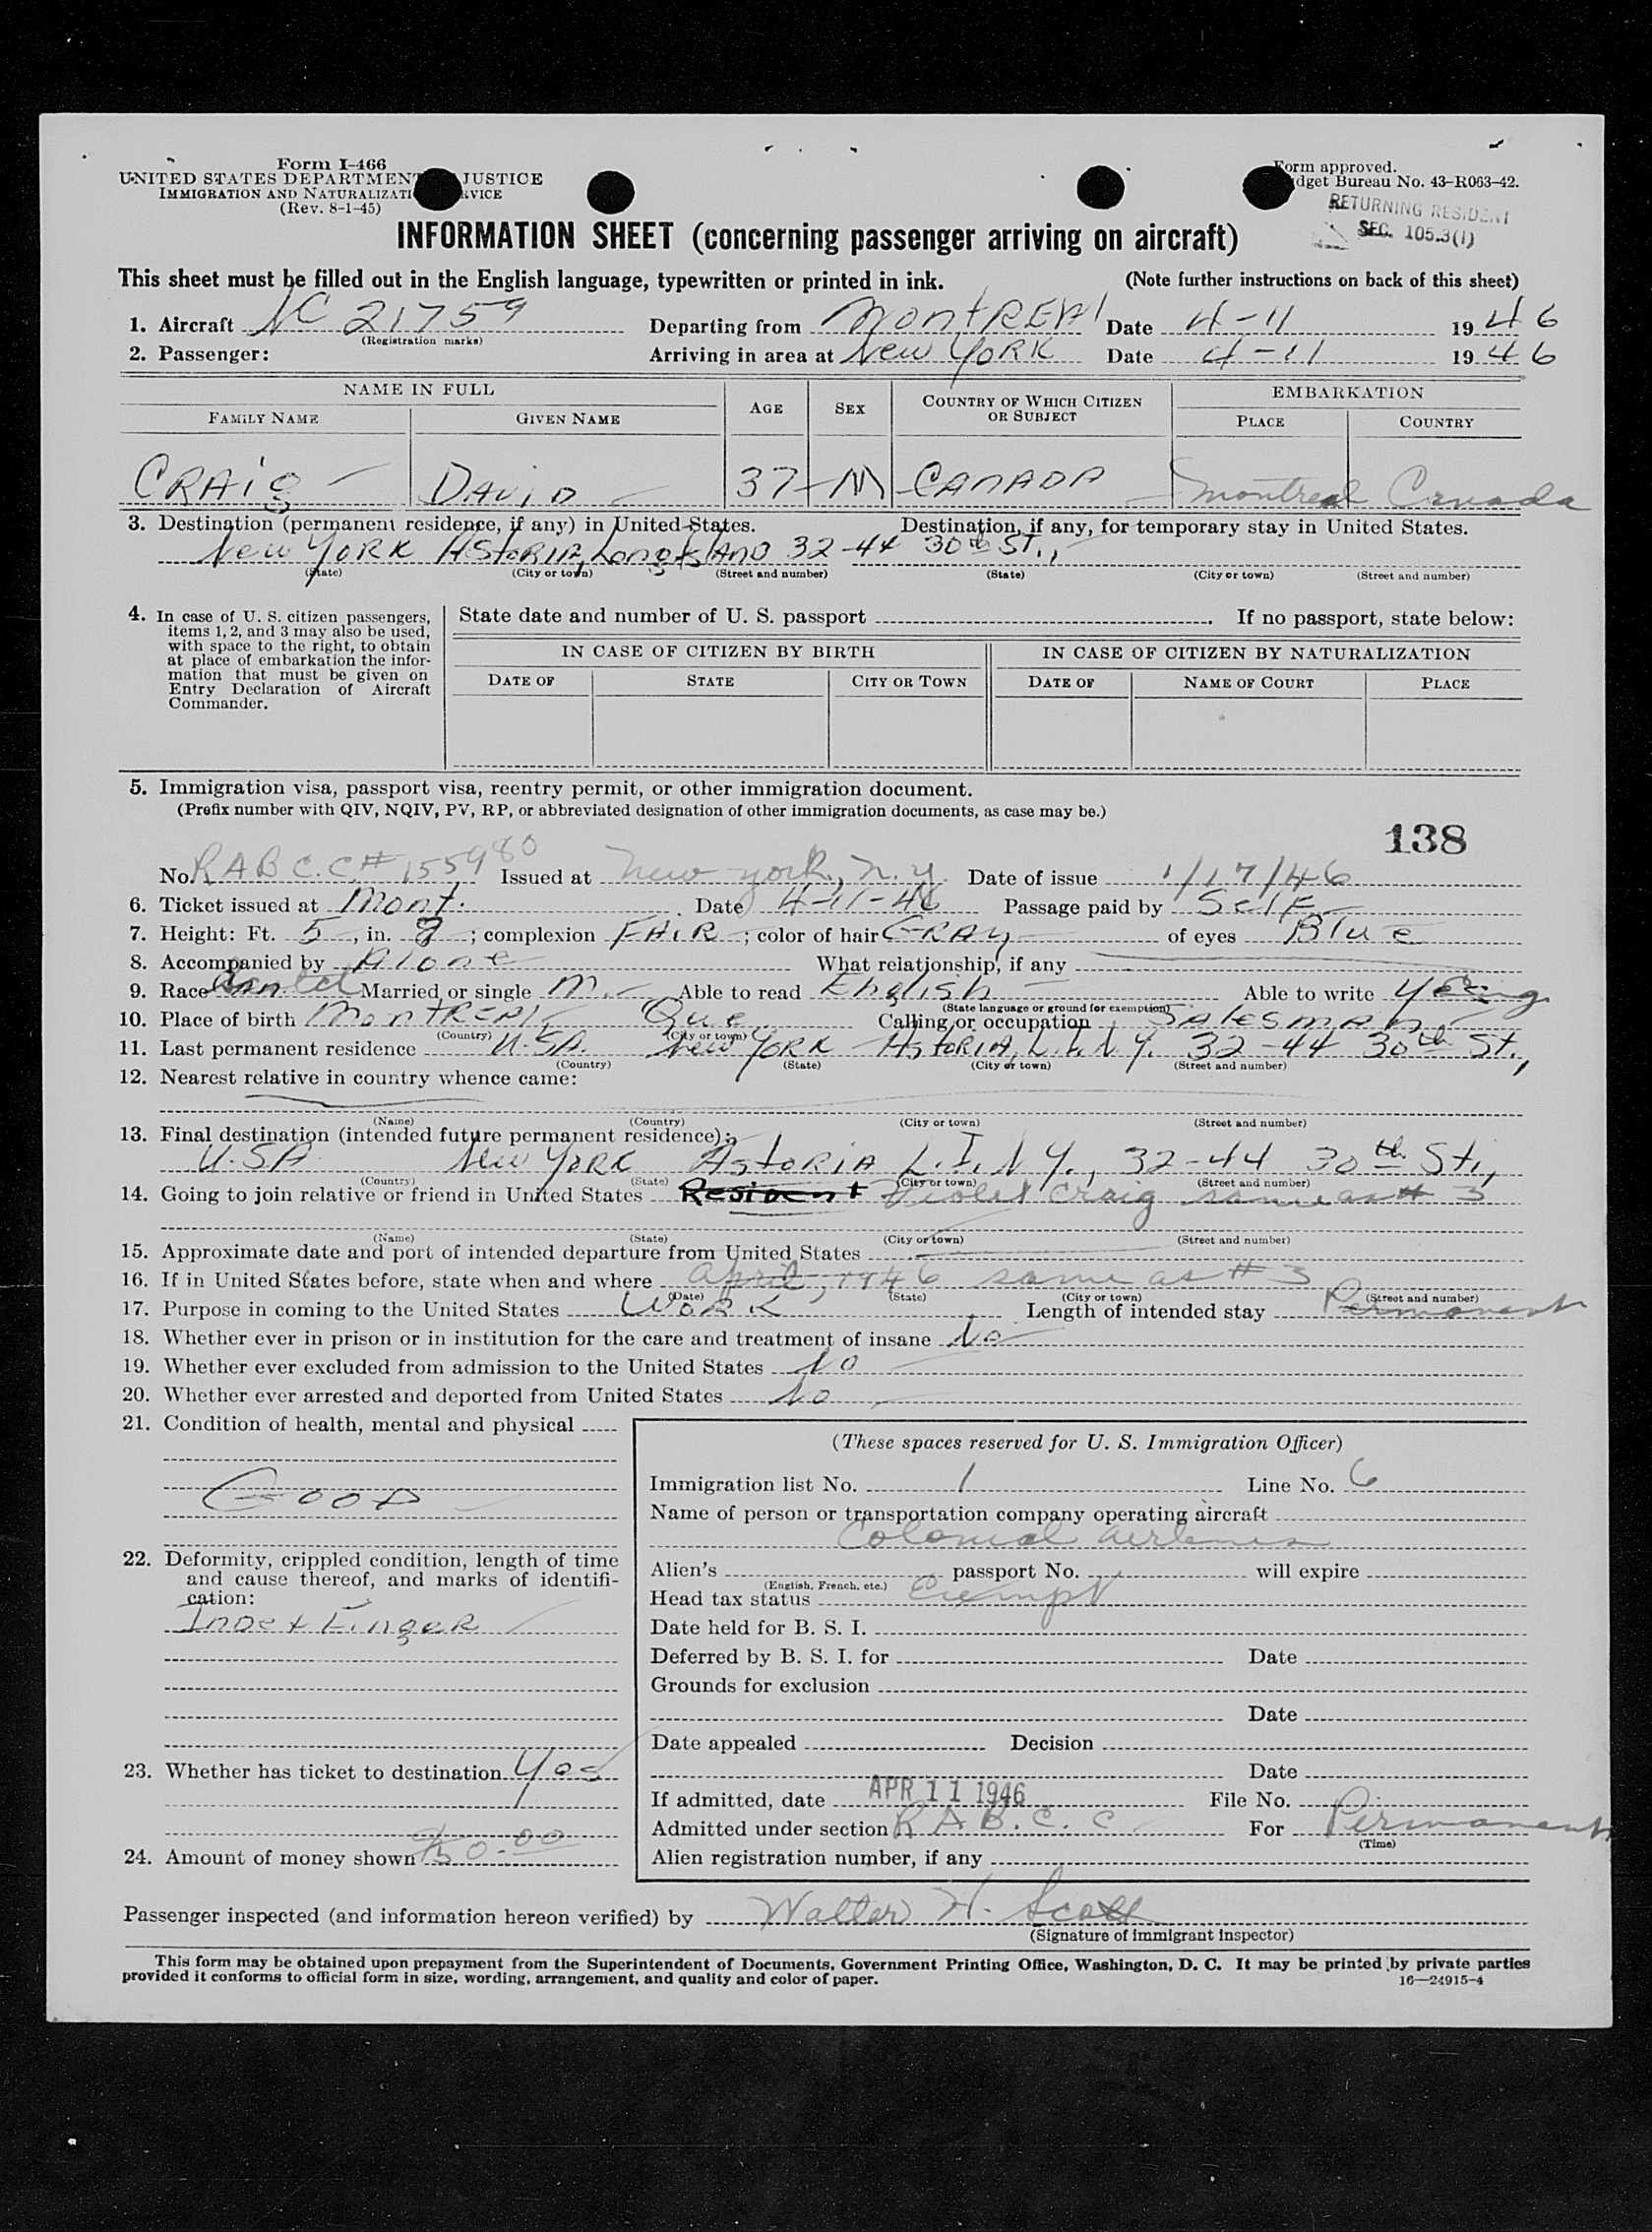 Form I-466
UNITED STATES DEPARTMENT JUSTICE
IMMIGRATION AND NATURALIZATI RVICE
(Rev. 8-1-45)
Form approved.
dget Bureau No. 43-R063-42.
RETURNING RESIDENT
SEC. 105.3(1)
INFORMATION SHEET (concerning passenger arriving on aircraft)
This sheet must be filled out in the English language, typewritten or printed in ink. (Note further instructions on back of this sheet)
1. Aircraft NC 21759 Departing from MontREAl Date 4-11 1946
(Registration marks)
2. Passenger: Arriving in area at New YORK Date 4-11 1946
NAME IN FULL AGE SEX COUNTRY OF WHICH CITIZEN OR SUBJECT EMBARKATION
FAMILY NAME GIVEN NAME PLACE COUNTRY
CRAig DAViD 37 M CANADA Montreal Canada
3. Destination (permanent residence, if any) in United States. Destination, if any, for temporary stay in United States.
New YORK AStoRIA, Long IslAND 32-44 30th ST.,
(State) (City or town) (Street and number) (State) (City or town) (Street and number)
4. In case of U. S. citizen passengers,
items 1, 2, and 3 may also be used,
with space to the right, to obtain
at place of embarkation the infor-
mation that must be given on
Entry Declaration of Aircraft
Commander.
State date and number of U. S. passport . If no passport, state below:
IN CASE OF CITIZEN BY BIRTH IN CASE OF CITIZEN BY NATURALIZATION
DATE OF STATE CITY OR TOWN DATE OF NAME OF COURT PLACE
5. Immigration visa, passport visa, reentry permit, or other immigration document.
(Prefix number with QIV, NQIV, PV, RP, or abbreviated designation of other immigration documents, as case may be.)
138
No. RABC.C# 155980 Issued at New York, N.Y. Date of issue 1/17/46
6. Ticket issued at Mont. Date 4-11-46 Passage paid by SelF
7. Height: Ft. 5, in. ; complexion FAIR; color of hair GRAy of eyes Blue
8. Accompanied by Alone What relationship, if any
9. Race Married or single M. Able to read English Able to write yes
(State language or ground for exemption)
10. Place of birth MontREAl Que Calling or occupation SAlesmAn
(Country) (City or town)
11. Last permanent residence U.S.A. New YORK AstoRIA, L.I.N.Y. 32-44 30th St.,
(Country) (State) (City or town) (Street and number)
12. Nearest relative in country whence came:
(Name) (Country) (City or town) (Street and number)
13. Final destination (intended future permanent residence):
U.S.A New YoRK AstoRIA L.I.N.Y., 32-44 30th St.,
(Country) (State) (City or town) (Street and number)
14. Going to join relative or friend in United States Resident Violet Craig same as # 3
(Name) (State) (City or town) (Street and number)
15. Approximate date and port of intended departure from United States
16. If in United States before, state when and where April, 1946 same as # 3
(Date) (State) (City or town) (Street and number)
17. Purpose in coming to the United States WORK Length of intended stay Permanent
18. Whether ever in prison or in institution for the care and treatment of insane No
19. Whether ever excluded from admission to the United States No
20. Whether ever arrested and deported from United States No
21. Condition of health, mental and physical
GOOD
22. Deformity, crippled condition, length of time
and cause thereof, and marks of identifi-
cation:
InDex FingeR
23. Whether has ticket to destination Yes
24. Amount of money shown
(These spaces reserved for U. S. Immigration Officer)
Immigration list No. 1 Line No. 6
Name of person or transportation company operating aircraft
Colonial Airlines
Alien's passport No. will expire
(English, French, etc.)
Head tax status Exempt
Date held for B. S. I.
Deferred by B. S. I. for Date
Grounds for exclusion
Date
Date appealed Decision
Date
If admitted, date APR 11 1946 File No.
Admitted under section R.A.B.C.C For Permanent
(Time)
Alien registration number, if any
Passenger inspected (and information hereon verified) by Walter H. Scott
(Signature of immigrant inspector)
This form may be obtained upon prepayment from the Superintendent of Documents, Government Printing Office, Washington, D. C. It may be printed by private parties
provided it conforms to official form in size, wording, arrangement, and quality and color of paper. 16—24915-4